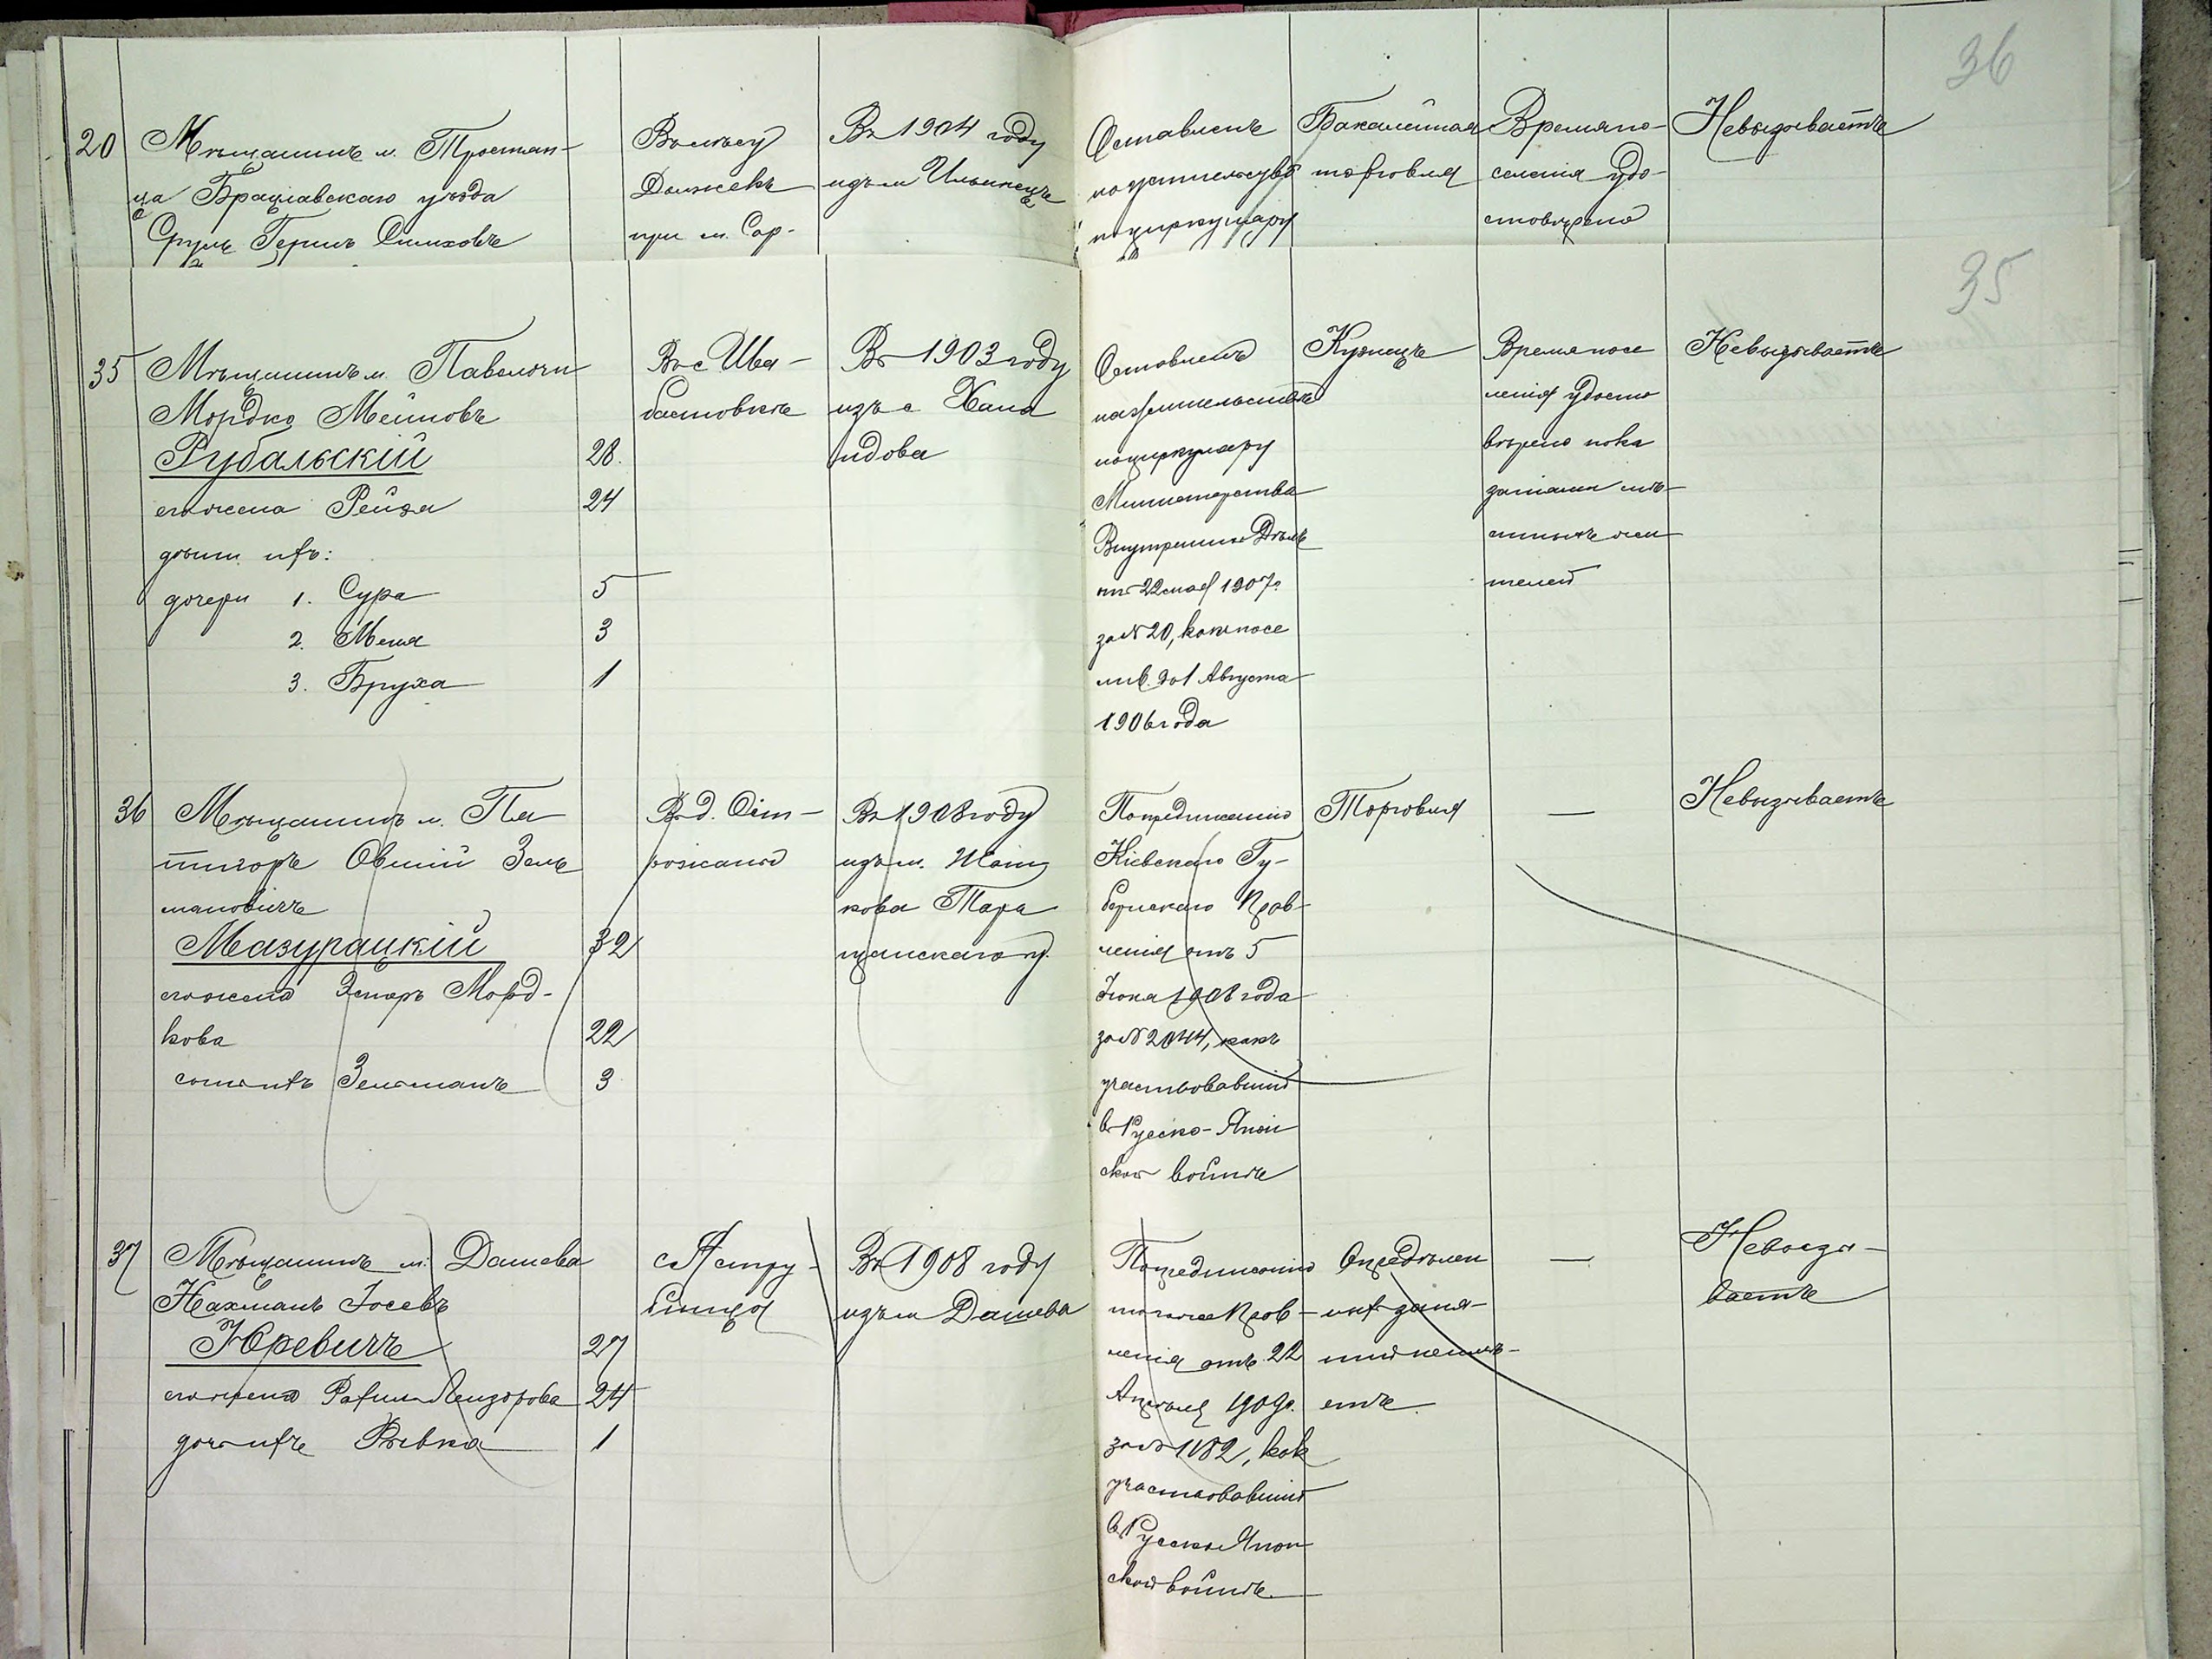 36
20
Мѣщанинъ м. Тростян-
ца Брацлавскаго уѣзда
Сруль Гершъ
Въ лѣсу
при м. Сор-
Въ 1904 году
изъ м Ильинецъ
Оставленъ
по циркуляру
Бакалейная
торговля
Время по-
селенія удо-
стовѣрено
Невызываетъ
35
35
Мѣщанинъ м. Паволочи
Мордко Мейловъ
Рубальскій
28.
его жена Рейзя
24
дѣти ихъ:
дочери 1. Сура
5
2. Меня
3
3. Бруха
1
Въ с Ива-
Въ 1903 году
изъ с
Оставленъ
на жительствѣ
по циркуляру
Министерства
Внутреннихъ Дѣлъ
отъ 22 мая 1907 г.
за № 20, какъ посе
лив. до 1 Августа
1906 года
Кузнецъ
Время посе
ленія удосто
вѣрено пока
заніями мѣ-
стныхъ жи
телей
Невызываетъ
36
Мѣщанинъ м. Пя
тигоръ Овшій Зель
мановичъ
Мазурацкій
32
его жена ЭстеръМорд-
кова
22
сынъ ихъ Зельманъ
3
Въ 1908 году
изъ м.
кова Тара
щанскаго у.
По предписанію
Кіевскаго Гу-
бернскаго Прав-
ленія отъ 5
Іюня 1908 года
за № 2044, какъ
участвовавшій
въ Руско-Япон
ской войнѣ
Торговля
—
Невызываетъ
37
Мѣщанинъ м. Дашева
Нахманъ Іосевъ
Юревичъ
27
его жена Рахиль Лейзорова
24
дочь ихъ Ривка
1
Въ 1908 году
изъ м Дашева
По предписанію
того же Прав-
ленія отъ 22
Апрѣля 1909 г.
за № 1182, как
участвовавшій
въ Русско Япон
ской войнѣ.
Опредѣлен
ныхъ заня-
тій не имѣ-
етъ
—
Невызы-
ваетъ